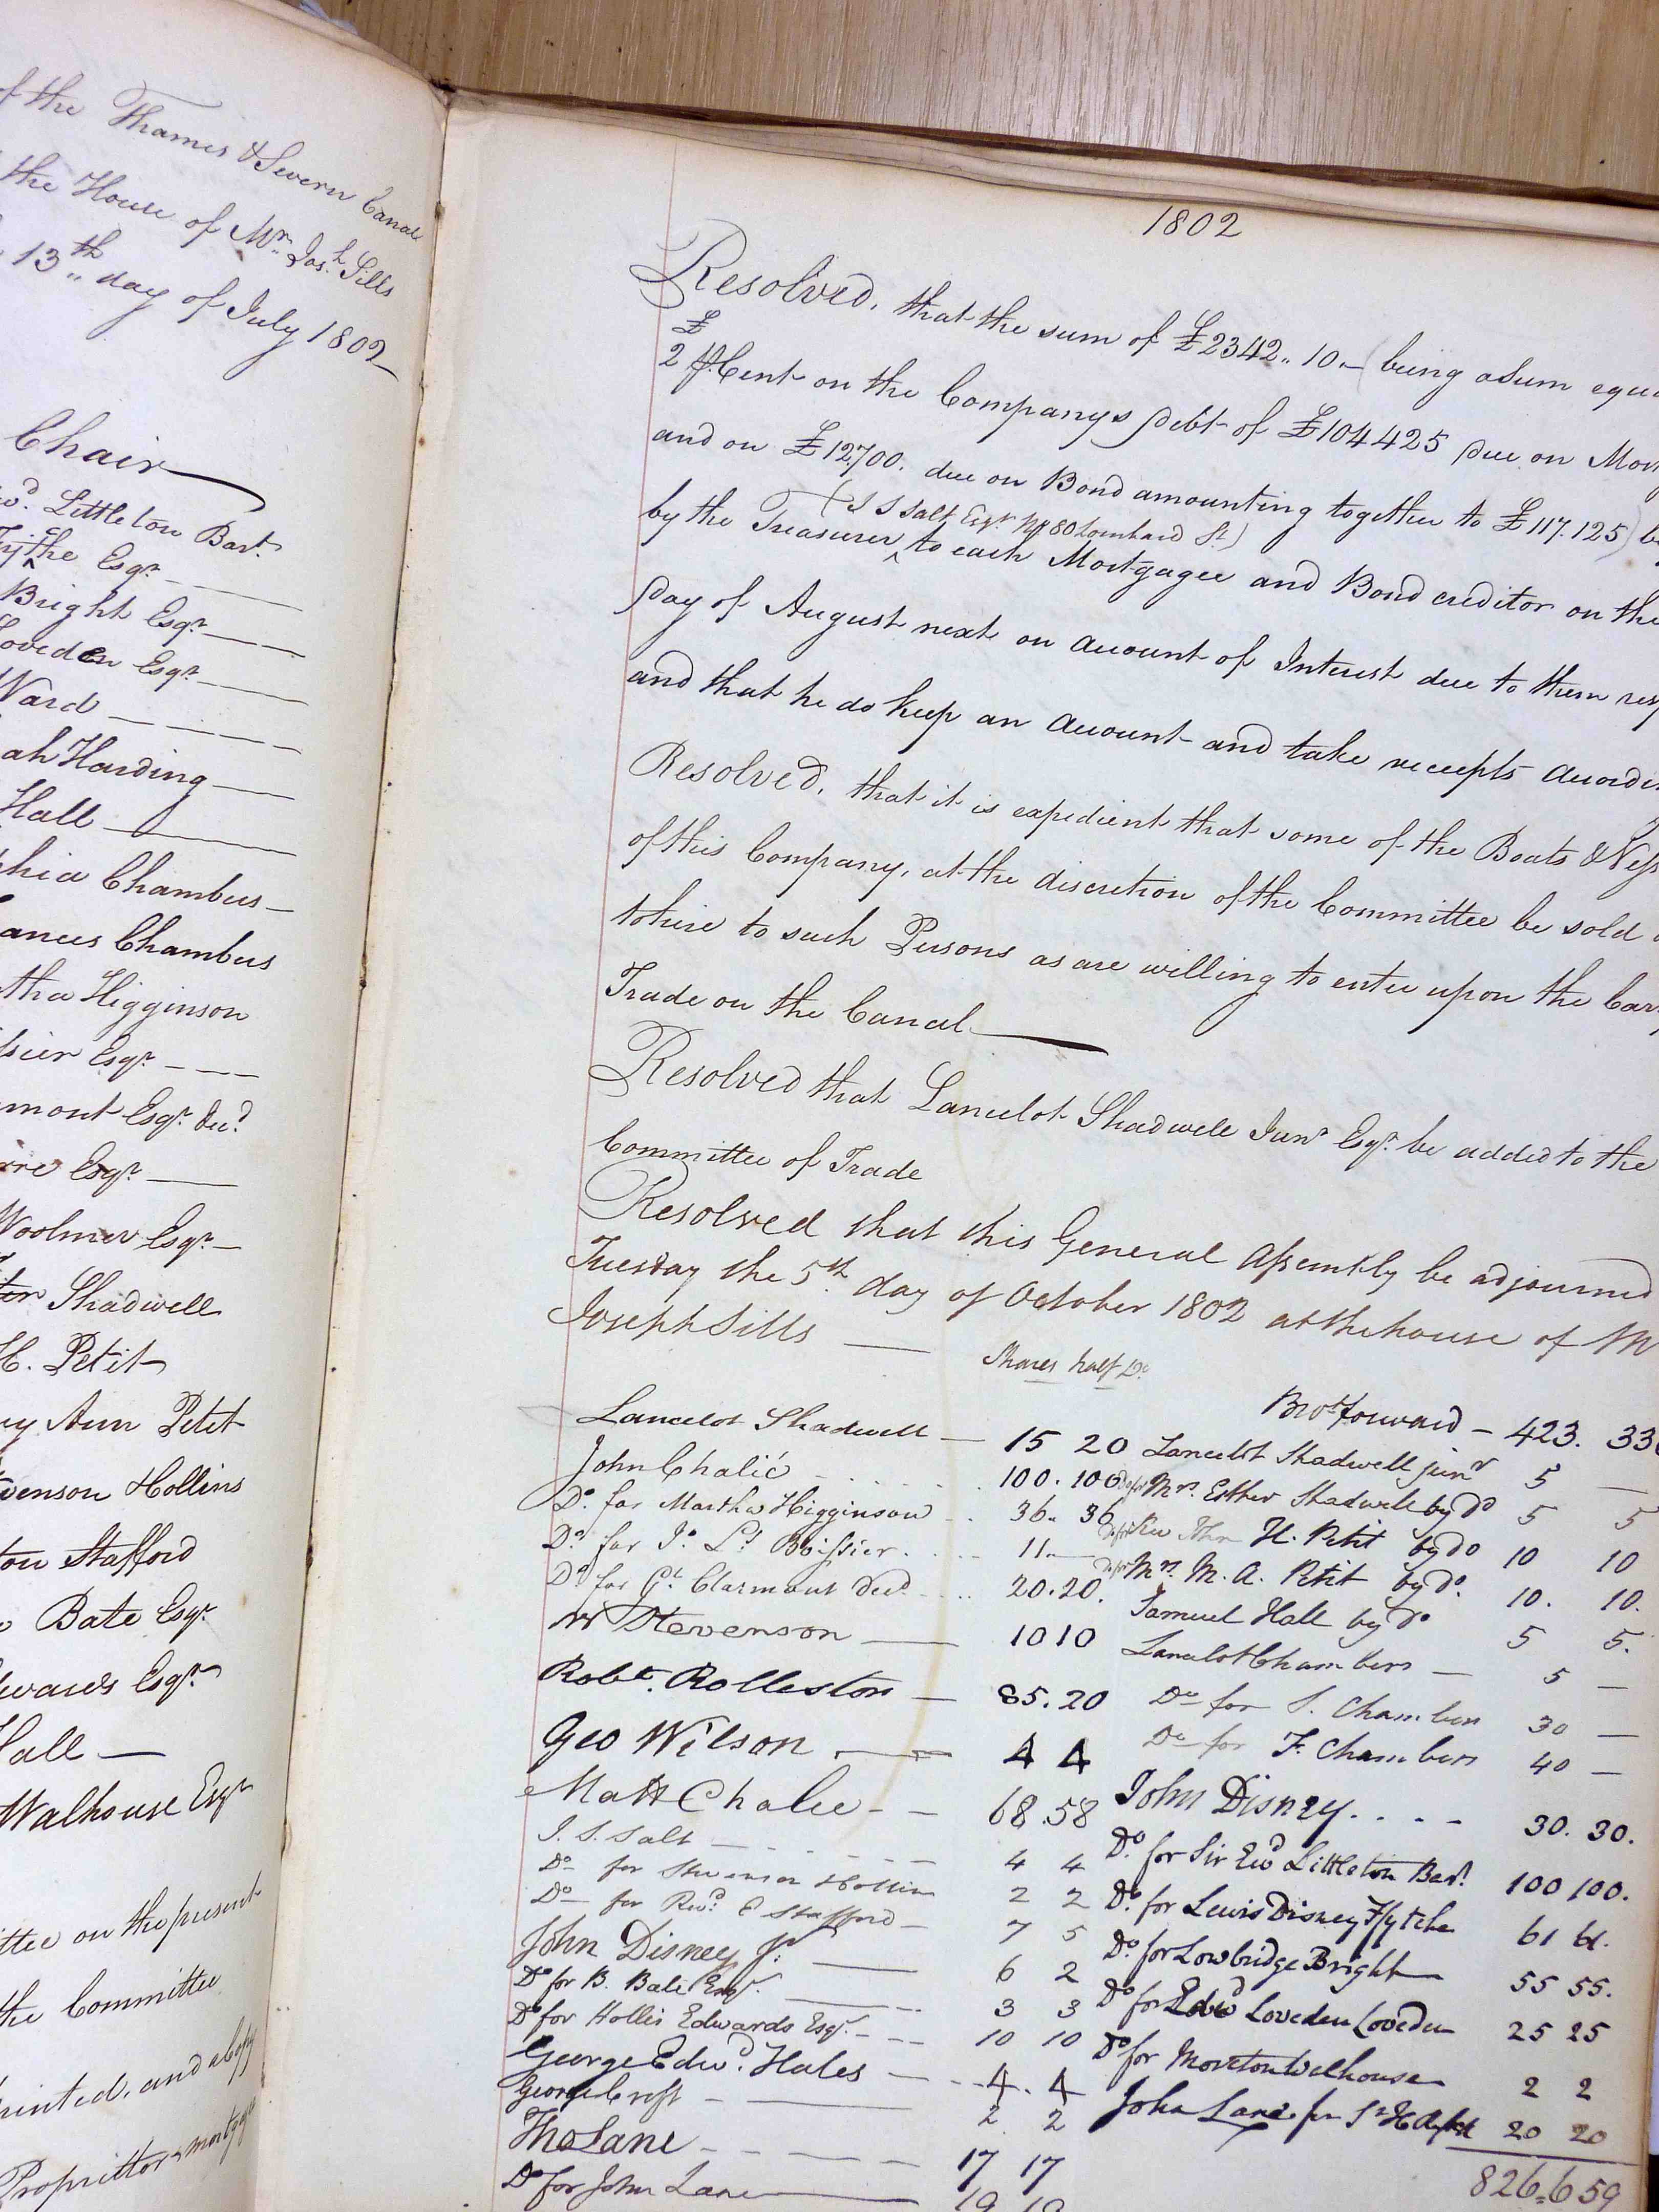 of the Thames & Severn Canal
the House of Mr. Jos.h Sills
13th day of July 1802
Chair
Littleton Bart.
Esqr.
Bright Esqr.
Loveden Esqr.
Ward
ah Harding
Hall
phia Chambers
ances Chambers
tha Higginson
ssier Esqr.
mont Esqr. Decd.
Esqr.
Woolmer Esqr.
Shadwell
H. Petit
ry Ann Petit
venson Hollins
ton Stafford
Bate Esqr.
dwards Esqr.
Hall
Walhouse Esqr.
ittee on the present
the Committee
printed, and a Copy
Proprietor & mortgagee
1802
Resolved, that the sum of £2342.. 10.- (being a Sum equa
£
2 P Cent on the Companys Debt of £104425 Due on Mort
and on £12700. due on Bond amounting together to £117.125) be
(J S Salt Esqr. No 80 Lombard St.)
by the Treasurer ^ to each Mortgagee and Bond creditor on the
Day of August next on account of Interest due to them resp
and that he do keep an Account and take receipts accordin
Resolved, that it is expedient that some of the Boats & Vess
of this Company, at the discretion of the Committee be sold o
to hire to such Persons as are willing to enter upon the Carr
Trade on the Canal
Resolved that Lancelot Shadwell Junr. Esqr. be added to the
Committee of Trade
Resolved that this General Assembly be adjourned
Tuesday the 5th day of October 1802 at the house of M
Joseph Sills
Shares half Do.
Lancelot Shadwell 15 20
John Chalié 100. 100
Do. for Martha Higginson 36.. 36
Do. for Jo. Ls. Boissier 11..
Do. for Gt. Clarmont Decd. 20. 20.
W Stevenson 10 10
Robt. Rolleston 85. 20
Geo Wilson 4 4
Matt Chalie 68. 58
J. S. Salt 4 4
Do for Stevenson Hollins 2 2
Do for Revd. E Stafford 7 5
John Disney Jr. 6 2
Do for B. Bate Esqr. 3 3
Do for Hollis Edwards Esqr. 10 10
George Edwd. Hales 4. 4
George Croft 2 2
Tho Lane 17 17
Do for John Lane 19 19
Brot. forward - 423. 33
Lancelot Shadwell junr 5 —
Do for Mrs. Esther Shadwell by do 5 5
Do for Rev Jhn H. Petit by do 10 10
Do for Mrs. M. A. Petit by do. 10. 10.
Samuel Hall by do 5 5.
Lancelot Chambers 5 —
Do for S. Chambers 30 —
Do for F. Chambers 40 —
John Disney 30. 30.
Do. for Sir Ewd Littleton Bart. 100 100.
Do. for Lewis Disney Ffytche 61 61.
Do. for Lowbridge Bright 55 55.
Do for Edwd Loveden Loveden 25 25
Do for Moreton Walhouse 2 2
John Lane for 20 20
826. 659